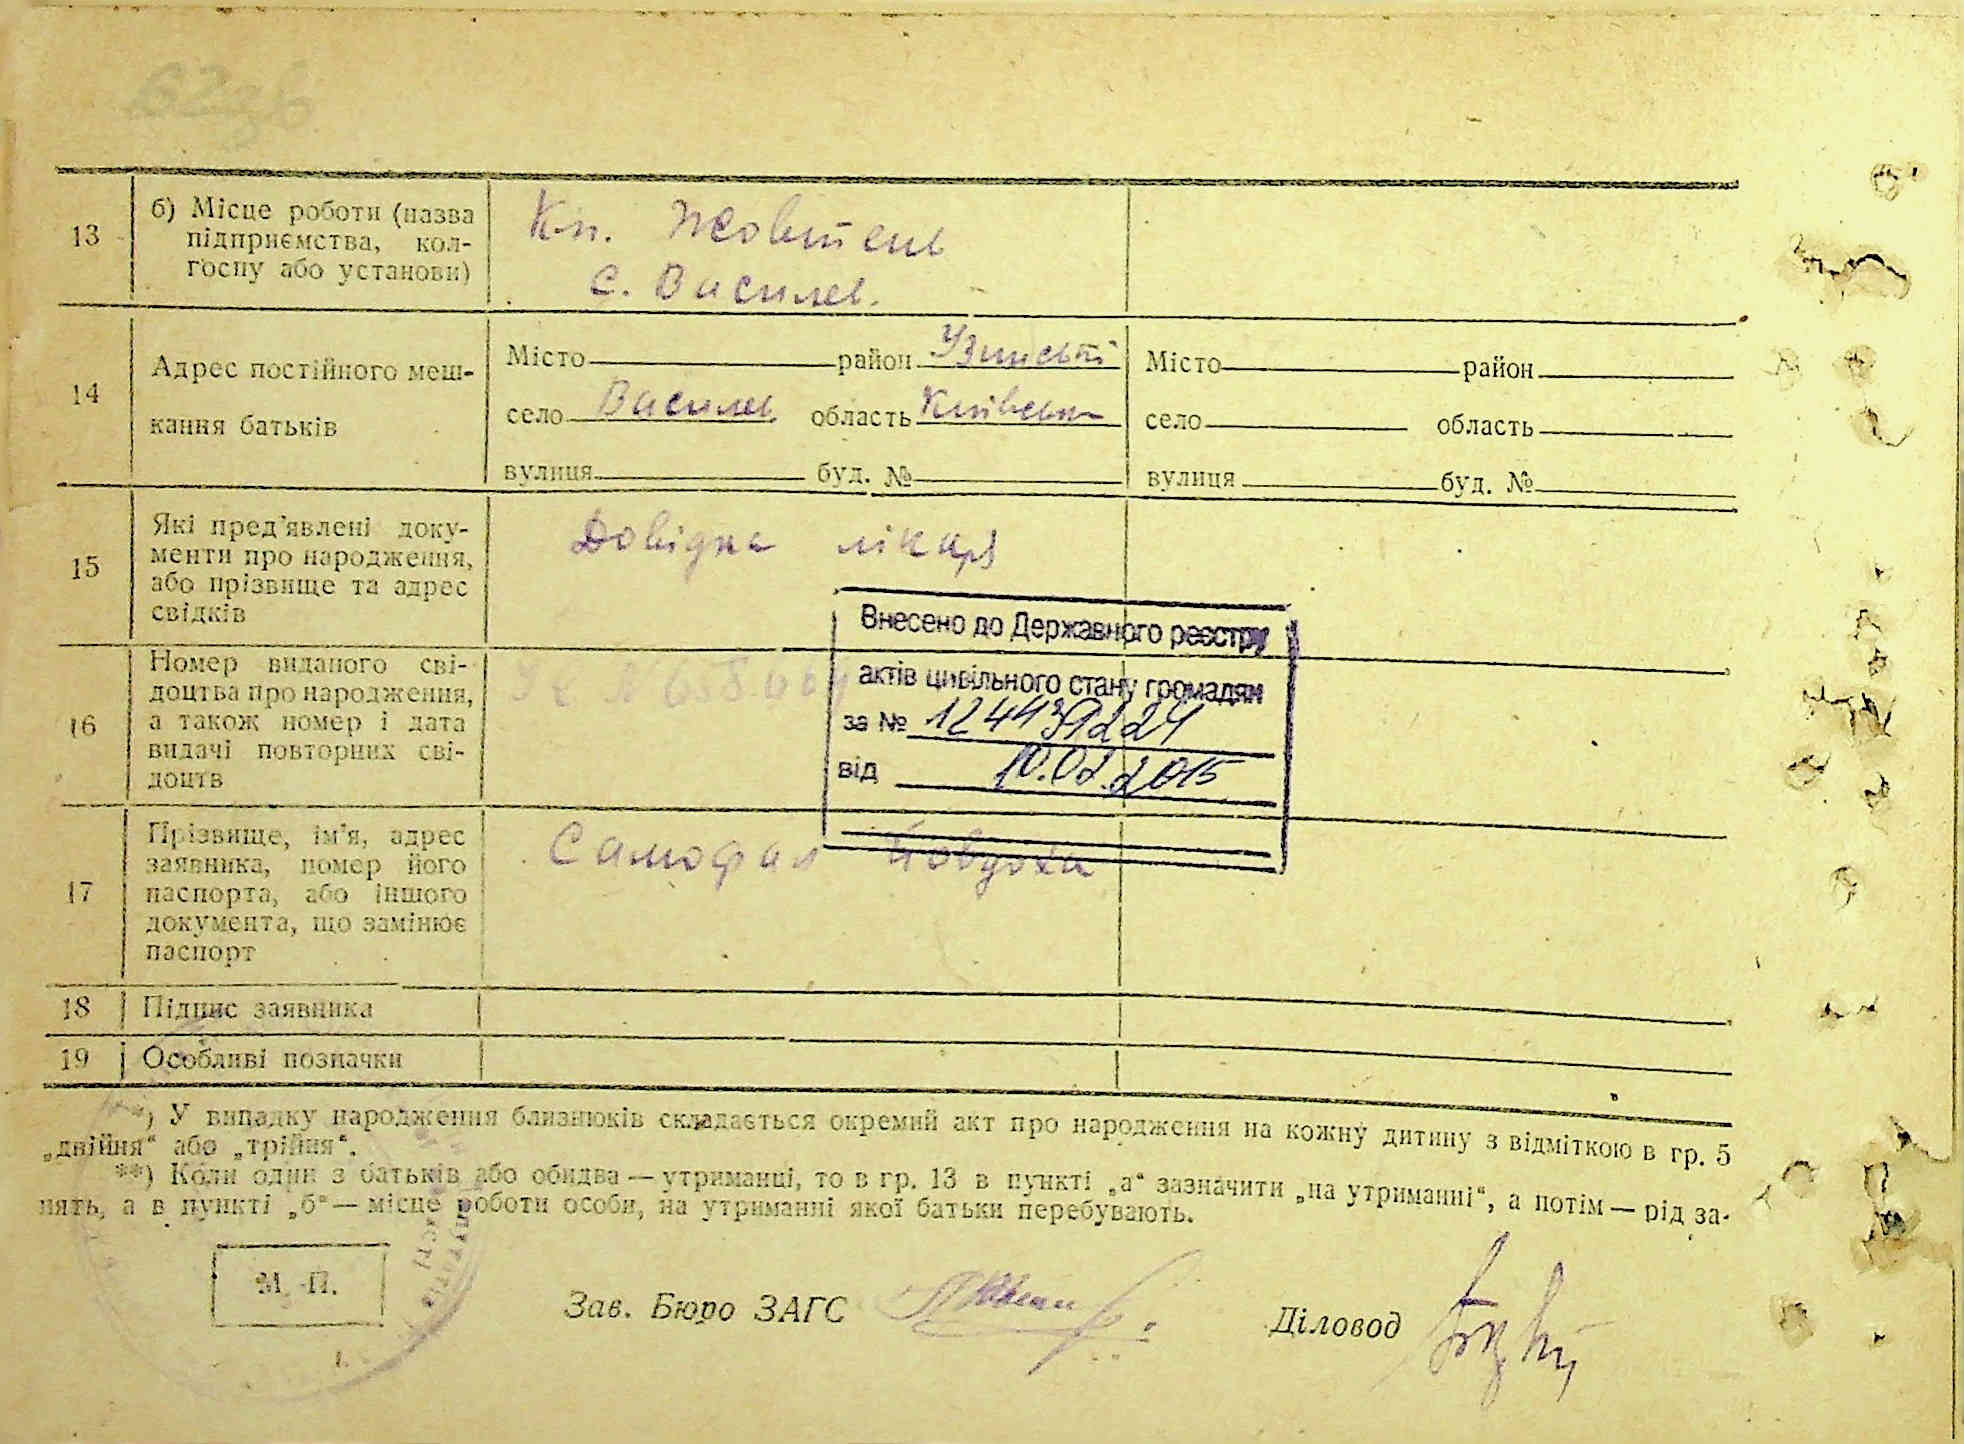 62зв
13 б) Місце роботи (назва
підприємства, кол-
госпу або установи)
Кп. Жовтень
с. Василев.
14 Адрес постійного меш-
кання батьків
Місто район Узинськ
село Василев область Київськ
вулиця буд. №
Місто район
село область
вулиця буд. №
15 Які пред'явлені доку-
менти про народження,
або прізвище та адрес
свідків
Довідка лікаря
16 Номер виданого сві-
доцтва про народження,
а також номер і дата
видачі повторних сві-
доцтв
Внесено до Державного реєстру
актів цивільного стану громадян
за №
від 10.02.2015
17 Прізвище, ім'я, адрес
заявника, номер його
паспорта, або іншого
документа, що замінює
паспорт
Самофал Явдоха
18 Підпис заявника
19 Особливі позначки
*) У випадку народження близнюків складається окремий акт про народження на кожну дитину з відміткою в гр. 5
„двійня“ або „трійня“.
**) Коли один з батьків або обидва — утриманці, то в гр. 13 в пункті „а“ зазначити „на утриманні“, а потім — рід за-
нять, а в пункті „б“ — місце роботи особи, на утриманні якої батьки перебувають.
М. П.
Зав. Бюро ЗАГС
Діловод